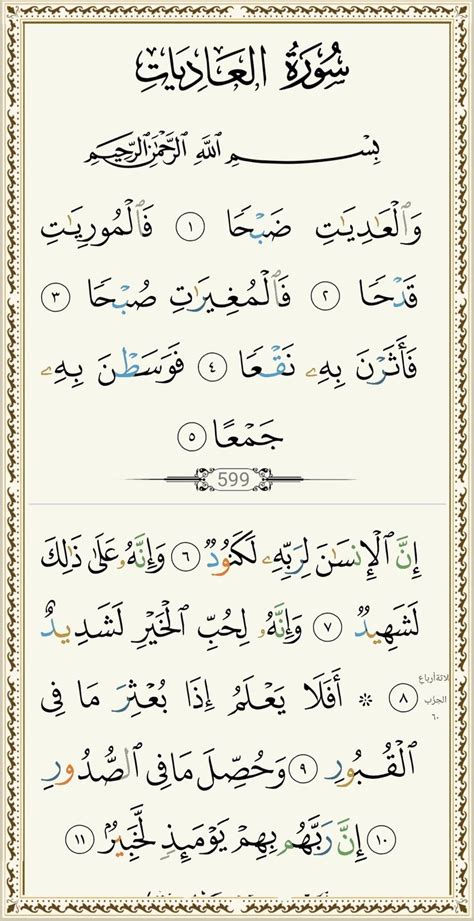 سُورَةُ الْعَادِيَاتِ
بِسْمِ اللَّهِ الرَّحْمَٰنِ الرَّحِيمِ
وَٱلْعَٰدِيَٰتِ ضَبْحًا ١ فَٱلْمُورِيَٰتِ
قَدْحًا ٢ فَٱلْمُغِيرَٰتِ صُبْحًا ٣
فَأَثَرْنَ بِهِۦ نَقْعًا ٤ فَوَسَطْنَ بِهِۦ
جَمْعًا ٥
599
إِنَّ ٱلْإِنسَٰنَ لِرَبِّهِۦ لَكَنُودٌ ٦ وَإِنَّهُۥ عَلَىٰ ذَٰلِكَ
لَشَهِيدٌ ٧ وَإِنَّهُۥ لِحُبِّ ٱلْخَيْرِ لَشَدِيدٌ
٨ ۞ أَفَلَا يَعْلَمُ إِذَا بُعْثِرَ مَا فِى
لاثة أرباع
الحزب
٦٠
ٱلْقُبُورِ ٩ وَحُصِّلَ مَا فِى ٱلصُّدُورِ
١٠ إِنَّ رَبَّهُم بِهِمْ يَوْمَئِذٍ لَّخَبِيرٌۢ ١١